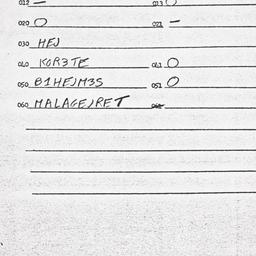 012 — 013 O
020 O 021 —
030 HEJ
040 KOR3TE 041 O
050 B1HEJM3S 051 O
060 MALAGEJRET 061